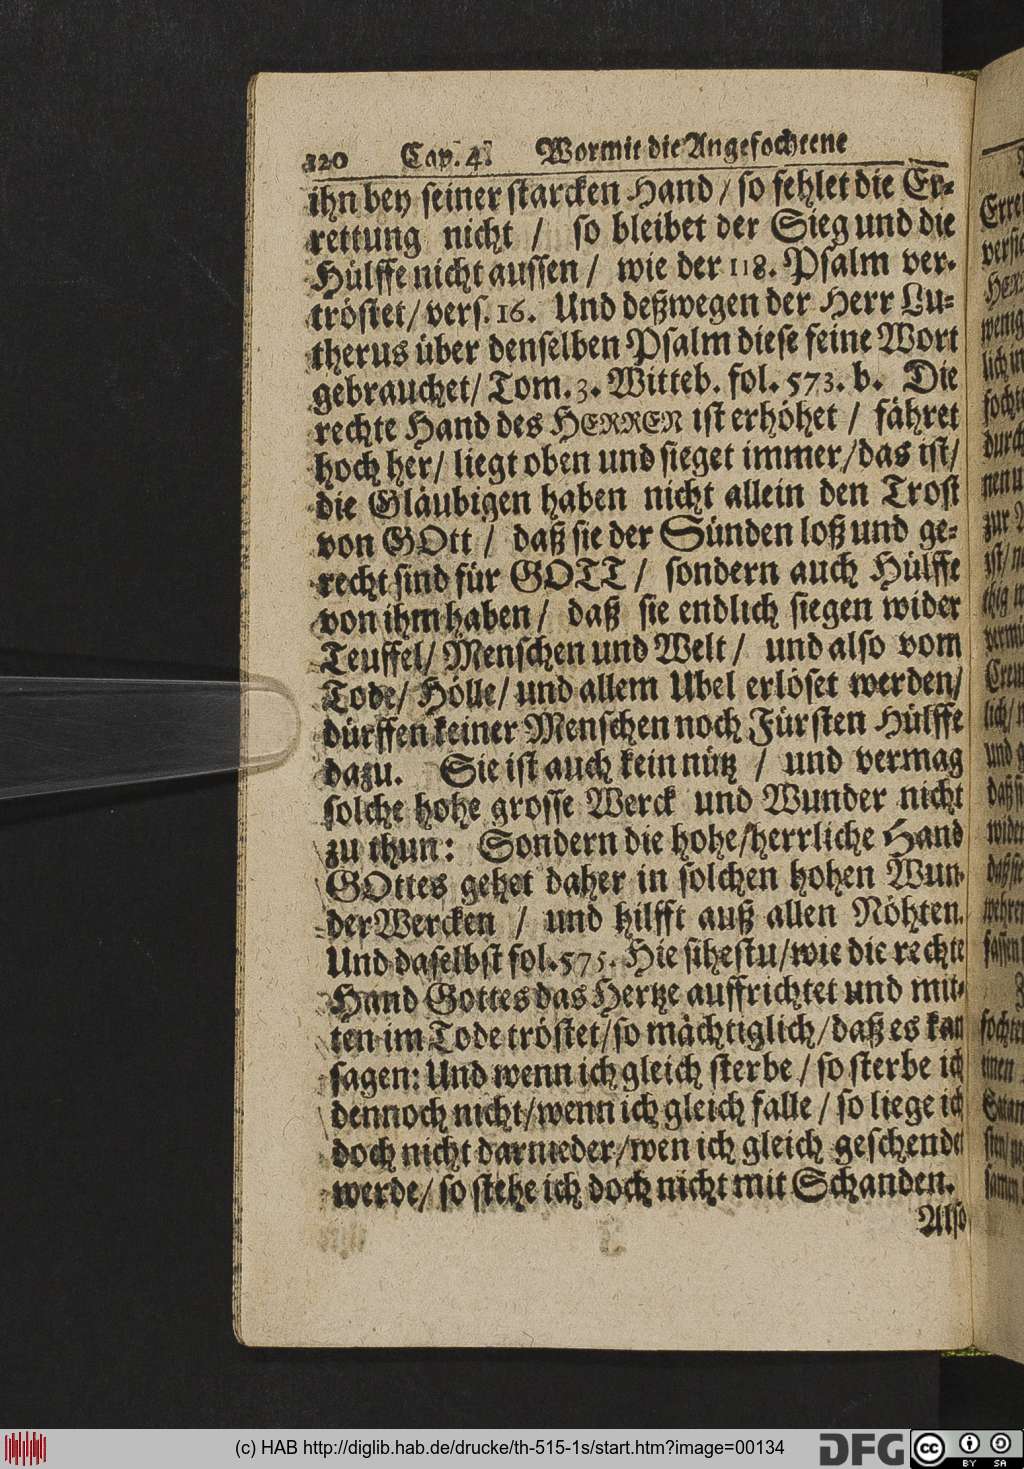 120 Cap. 4. Wormit die Angefochtene
ihn bey seiner starcken Hand / so fehlet die Er-
rettung nicht / so bleibet der Sieg und die
Hülffe nicht aussen / wie der 118. Psalm ver-
tröstet / vers. 16. Und deßwegen der Herr Lu-
therus über denselben Psalm diese seine Wort
gebrauchet / Tom. 3. Witteb. fol. 573. b. Die
rechte Hand des HERREN ist erhöhet / fähret
hoch her / liegt oben und sieget immer / das ist /
die Gläubigen haben nicht allein den Trost
von GOtt / daß sie der Sünden loß und ge-
recht sind für GOTT / sondern auch Hülffe
von ihm haben / daß sie endlich siegen wider
Teuffel / Menschen und Welt / und also vom
Tode / Hölle / und allem Ubel erlöset werden /
dürffen keiner Menschen noch Fürsten Hülffe
dazu. Sie ist auch kein nütz / und vermag
solche hohe grosse Werck und Wunder nicht
zu thun: Sondern die hohe / herrliche Hand
GOttes gehet daher in solchen hohen Wun-
der Wercken / und hilfft auß allen Nöhten.
Und daselbst fol. 575. Hie sihestu / wie die rechte
Hand Gottes das Hertze auffrichtet und mit-
ten im Tode tröstet / so mächtiglich / daß es kan
sagen: Und wenn ich gleich sterbe / so sterbe ich
dennoch nicht / wenn ich gleich falle / so liege ich
doch nicht darnieder / wen ich gleich geschendet
werde / so stehe ich doch nicht mit Schanden.
Also
(c) HAB http://diglib.hab.de/drucke/th-515-1s/start.htm?image=00134
DFG
CC BY SA